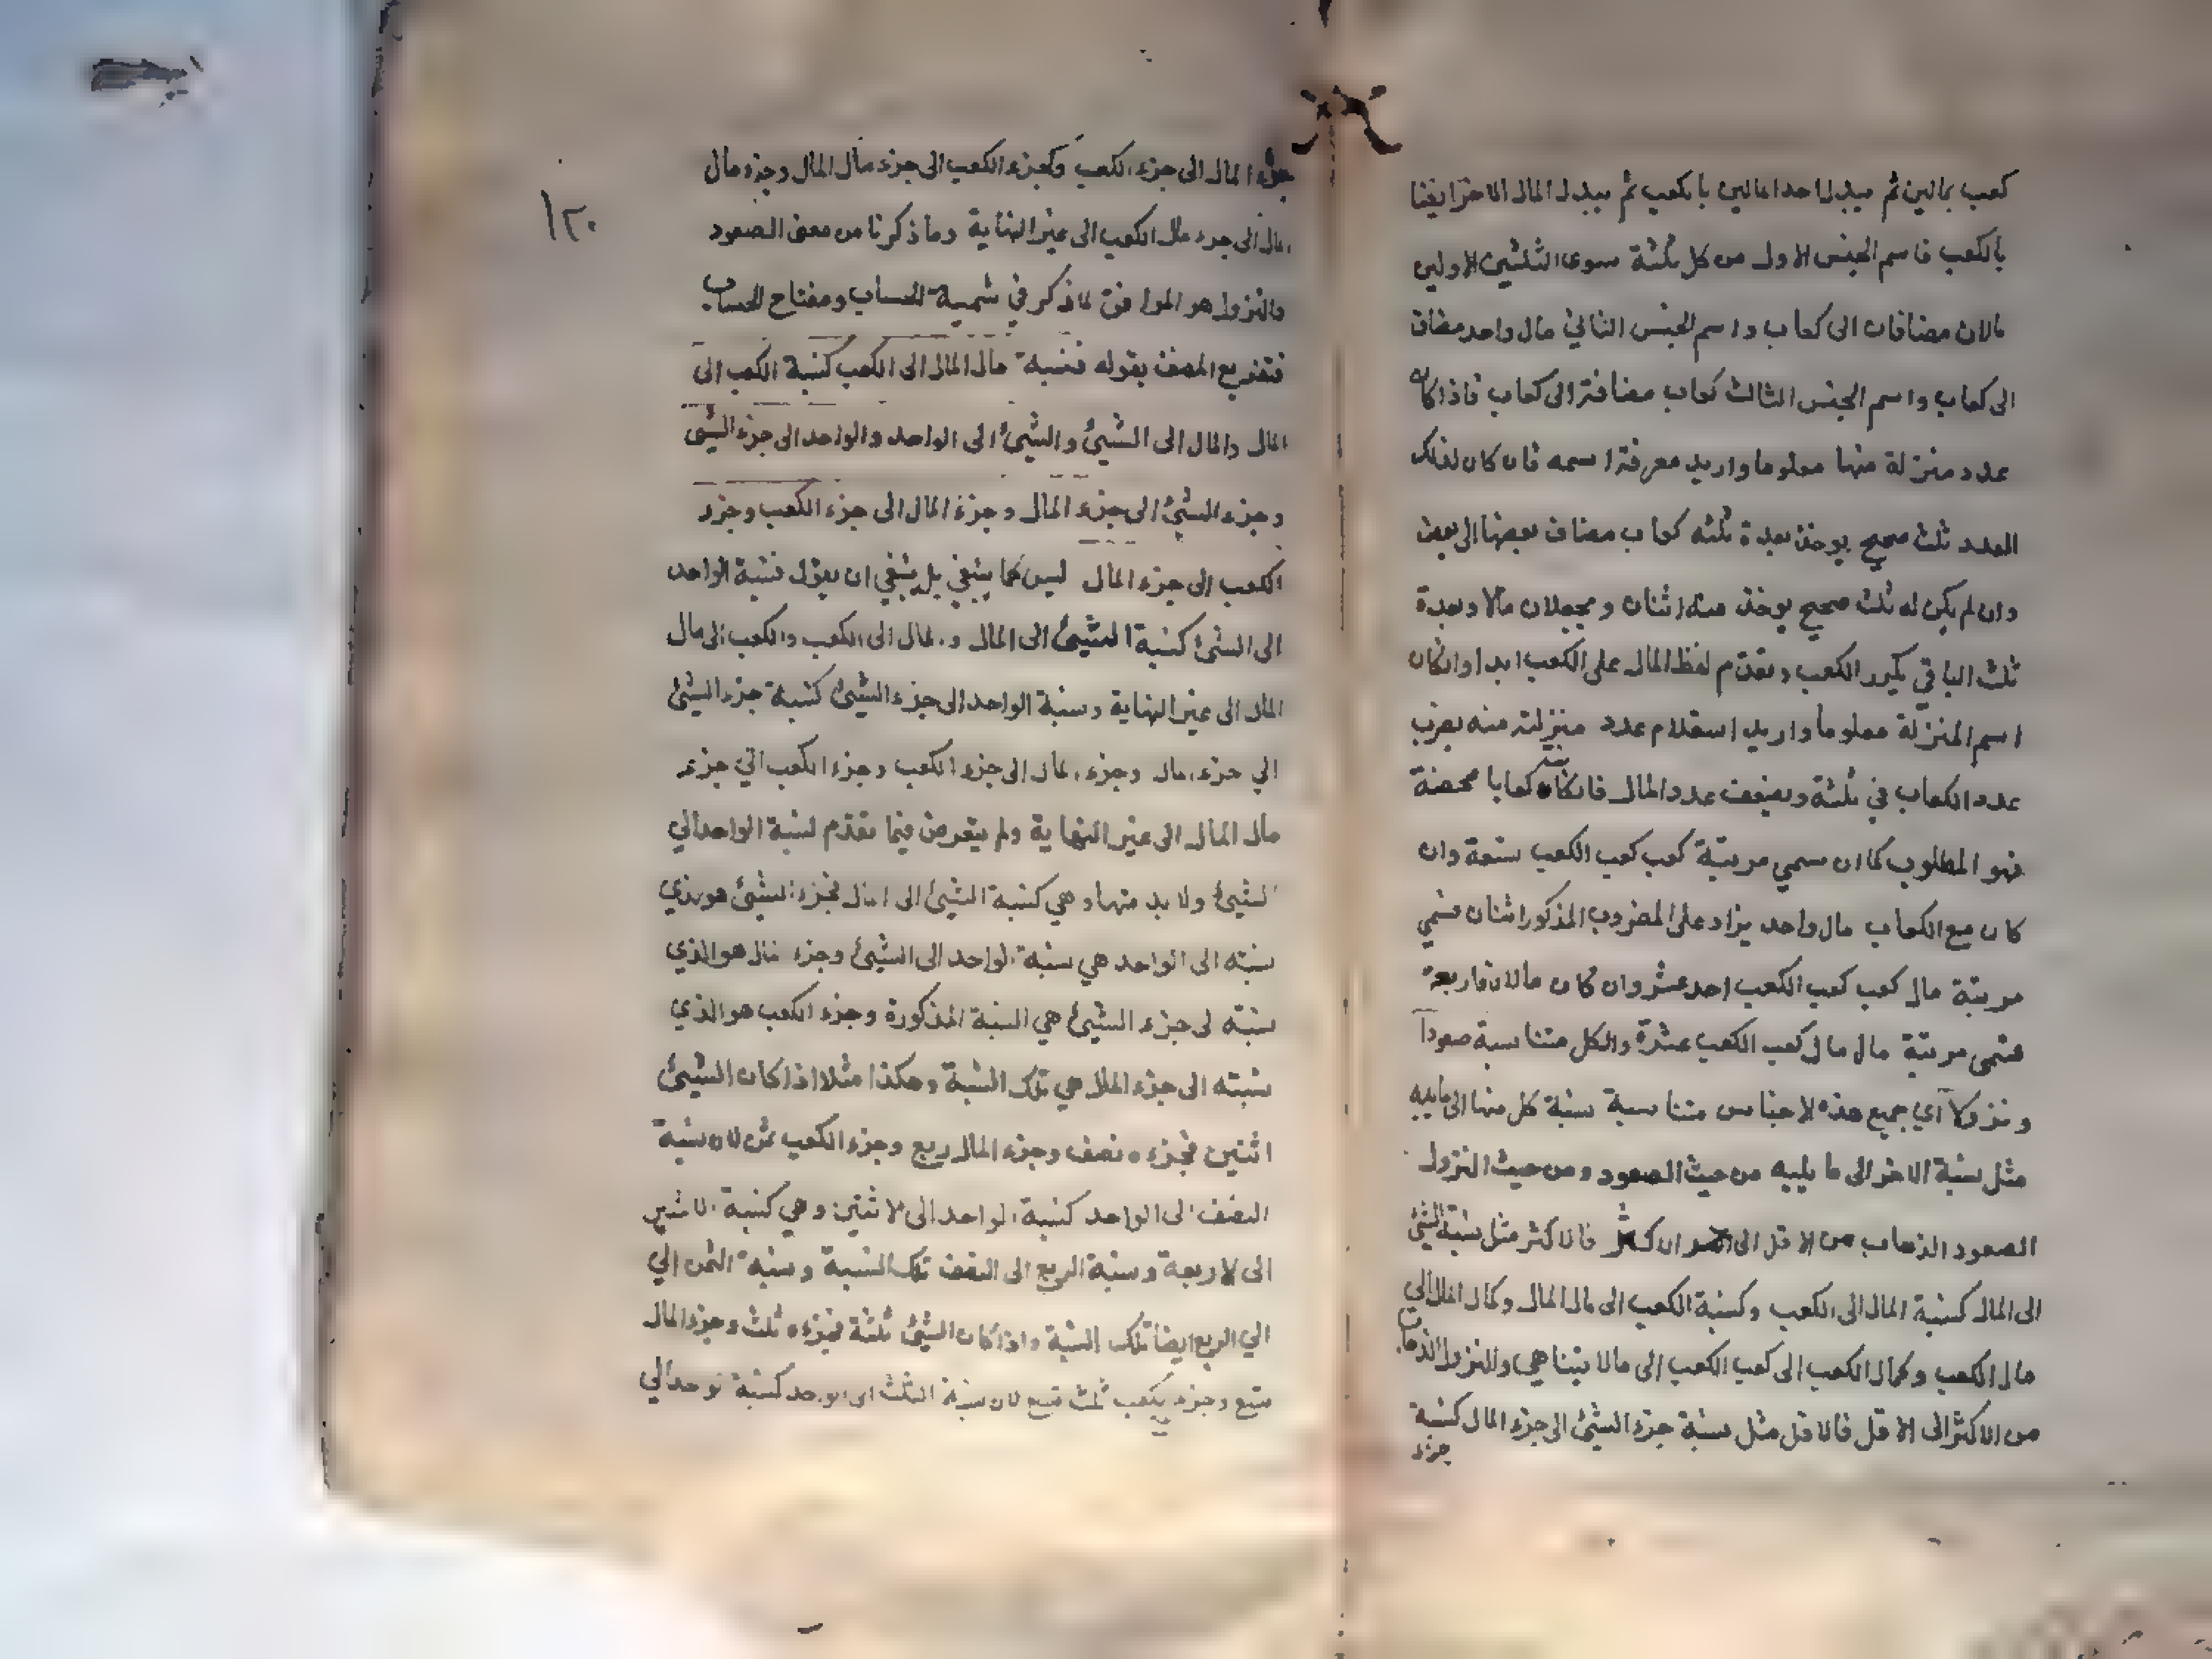 كعب بمالين ثم يبدل احد المالين بالكعب ثم يبدل المال الاخر ايضا
بالكعب فاسم الجنس الاول من كل ثلثة سوى الثلثين الاولين
مالان مضافان الى كعاب واسم الجنس الثاني مال واحد مضاف
الى كعاب واسم الجنس الثالث كعاب مضافة الى كعاب فاذا كان
عدد منزلة منها معلوما واريد معرفة اسمه فان كان لذلك
العدد ثلث صحيح يوخذ بعدة ثلثه كعاب مضاف بعضها الى بعض
وان لم يكن له ثلث صحيح يوخذ منه اثنان ويجعلان مالا وبعدة
ثلث الباقي يكرر الكعب ويقدم لفظ المال على الكعب ابدا وان كان
اسم المنزلة معلوما واريد استعلام عدد منزلته منه يضرب
عدد الكعاب في ثلثة ويضعف عدد المال فان كان كعابا محضة
فهو المطلوب كما ان سمي مرتبة كعب كعب الكعب تسعة وان
كان مع الكعاب مال واحد يزاد على المضروب المذكور اثنان فسمي
مرتبة مال كعب كعب الكعب احد عشر وان كان مالان فاربعة
فسمى مرتبة مال مال كعب الكعب عشرة والكل متناسبة صعودا
ونزولا اي جميع هذه الاجناس متناسبة نسبة كل منها الى ما يليه
مثل نسبة الاخر الى ما يليه من حيث الصعود ومن حيث النزول
الصعود الذهاب من الاقل الى الاكثر فالاكثر مثل نسبة الشئ
الى المال كنسبة المال الى الكعب وكنسبة الكعب الى مال المال وكمال المال الى
مال الكعب وكمال الكعب الى كعب الكعب الى مالا يتناهي والنزول الذهاب
من الاكثر الى الاقل فالاقل مثل نسبة جزء الشئ الى جزء المال كنسبة
جزء
١٢٠
جزء المال الى جزء الكعب وكجزء الكعب الى جزء مال المال وجزء مال
المال الى جزء مال الكعب الى غير النهاية وما ذكرنا من معنى الصعود
والنزول هو الموافق لما ذكر في شمسية الحساب ومفتاح الحساب
فتفريع المصنف بقوله فنسبة مال المال الى الكعب كنسبة الكعب الى
المال والمال الى الشيئ والشيئ الى الواحد والواحد الى جزء الشئ
وجزء الشيئ الى جزء المال وجزء المال الى جزء الكعب وجزء
الكعب الى جزء المال ليس كما ينبغي بل ينبغي ان يقول فنسبة الواحد
الى الشئ كنسبة الشيئ الى المال والمال الى الكعب والكعب الى مال
المال الى غير النهاية ونسبة الواحد الى جزء الشيئ كنسبة جزء الشيئ
الي جزء المال وجزء المال الى جزء الكعب وجزء الكعب الي جزء
مال المال الى غير النهاية ولم يتعرض فيما تقدم لنسبة الواحد الي
الشيئ ولا بد منها وهي كنسبة الشيئ الى المال فجزء الشيئ هو الذي
نسبته الى الواحد هي نسبة الواحد الى الشيئ وجزء المال هو الذي
نسبته الى جزء الشيئ هي النسبة المذكورة وجزء الكعب هو الذي
نسبته الى جزء المال هي تلك النسبة وهكذا مثلا اذا كان الشيئ
اثنين فجزءه نصف وجزء المال ربع وجزء الكعب ثمن لان نسبة
النصف الى الواحد كنسبة الواحد الى الاثنين وهي كنسبة الاثنين
الى الاربعة ونسبة الربع الى النصف تلك النسبة ونسبة الثمن الي
الي الربع ايضا تلك النسبة واذا كان الشيئ ثلثة فجزءه ثلث وجزء المال
تسع وجزء الكعب ثلث تسع لان نسبة الثلث الى الواحد كنسبة الواحد الي